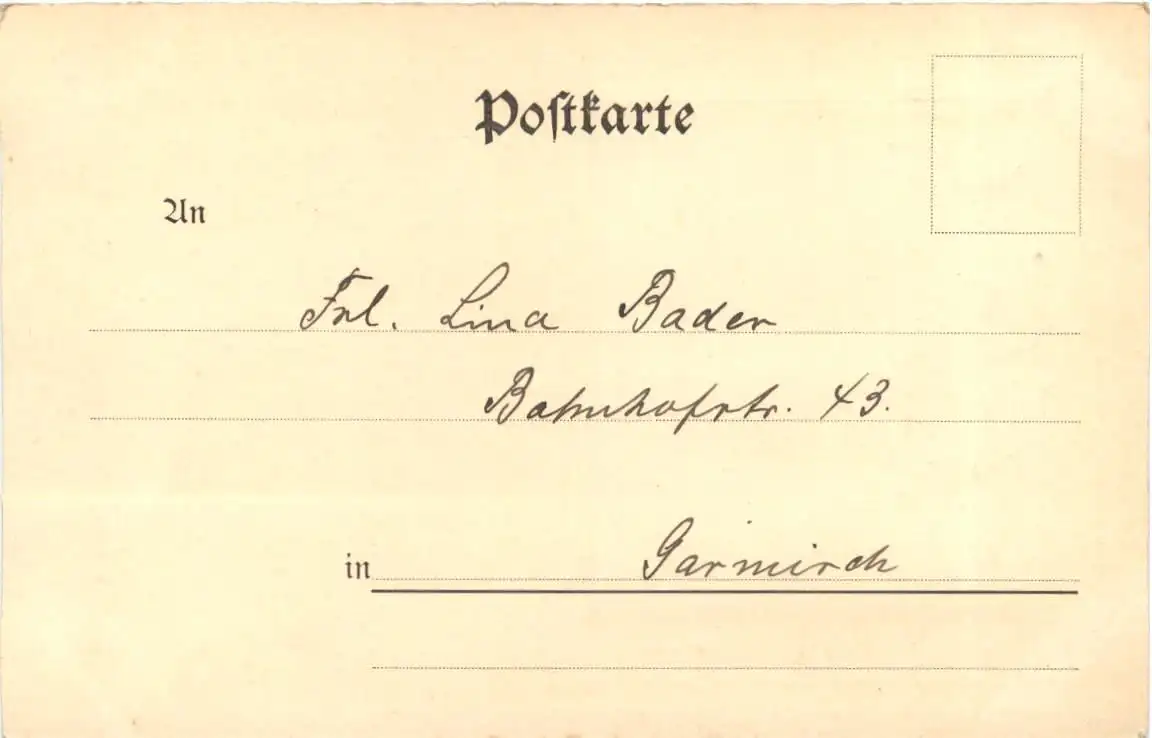 Postkarte
An
Frl. Lina Bader
Bahnhofstr. 43.
in Garmisch